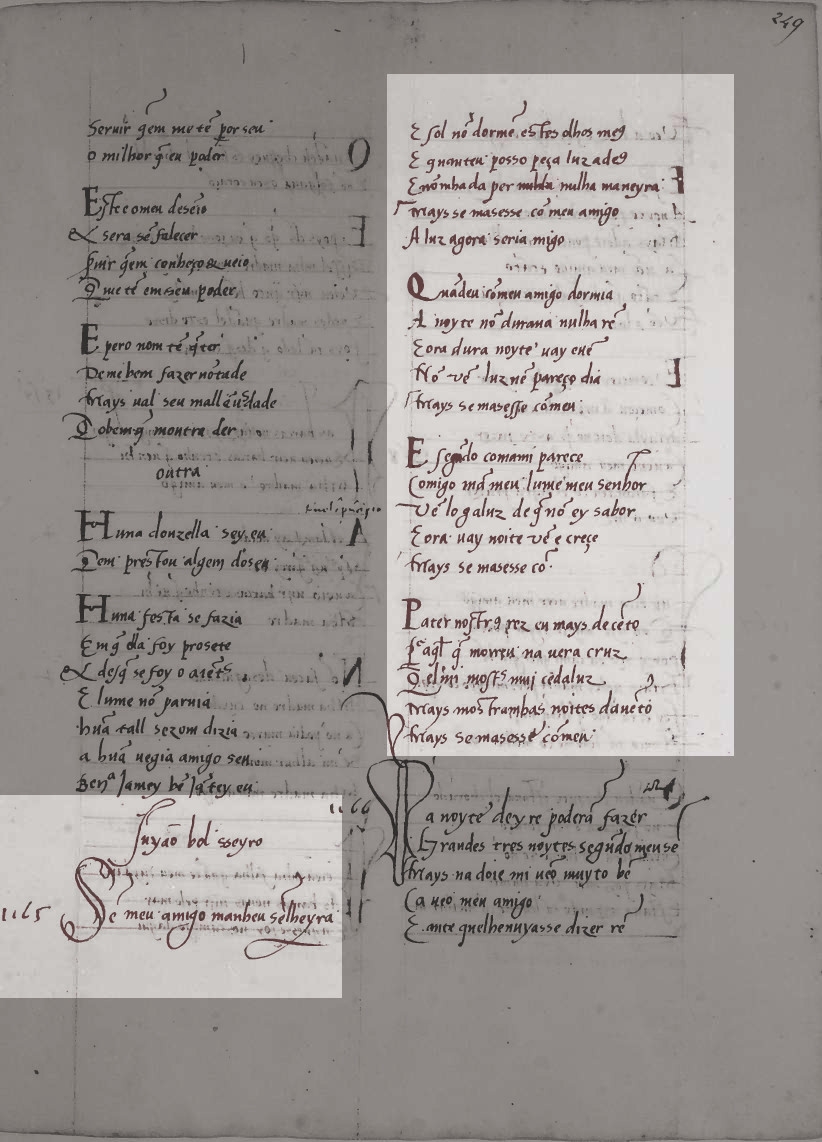 249
Seruir q̃em me tẽ por seu
o milhor q̃ eu poder
Este e o meu deseio
E sera sẽ falecer
q̃em conheço & ueio
Q me tẽ em seu poder
E pero nom tẽ
De me bem fazer uõtade
Mays ual seu mall
montra der
outra
Huna donzella sey eu
Q̃em prestou algem doseu
Huna festa se fazia
Em q̃ ella foy prosete
E desq̃ se foy o
E lume nõ paruia
huã tall sezom dizia
a huã uegia amigo seu
Benª Jamey bẽ eu
1165
Juyaõ bol sseyro
Sẽ meu amigo manheu sẽlheyra
E sol nõ dormẽ estes olhos meꝯ
E quanteu posso peça luz a deꝯ
E nõmha da per nulha maneyra
Mays se masesse cõ meu amigo
A luz agora seria migo
Quãdeu cõmeu amigo dormia
A noyte nõ duraua nulha rẽ
E ora dura noyte uay euẽ
Nõ uẽ luz nẽ pareço dia
Mays se masesse cõmeu
E segũdo comami parece
Comigo mã meu lume meu senhor
Uẽ log a luz de q̃ nõ ey sabor
E ora uay noite uẽ e creçe
Mays se masesse cõ
Pater nostrꝯ rez eu mays de cẽto
q̃ morreu na uera cruz
Q el mi mostˢ muj cedaluz
Mays mostrambas noites dauẽto
Mays se masesse cõmeu
1166
Da noyte deyre poderã fazer
Grandes tres noytes segũdo meu sẽ
Mays na doie mi ueõ muyto bẽ
Ca ueo meu amigo
E ante quelhenuyasse dizer rẽ